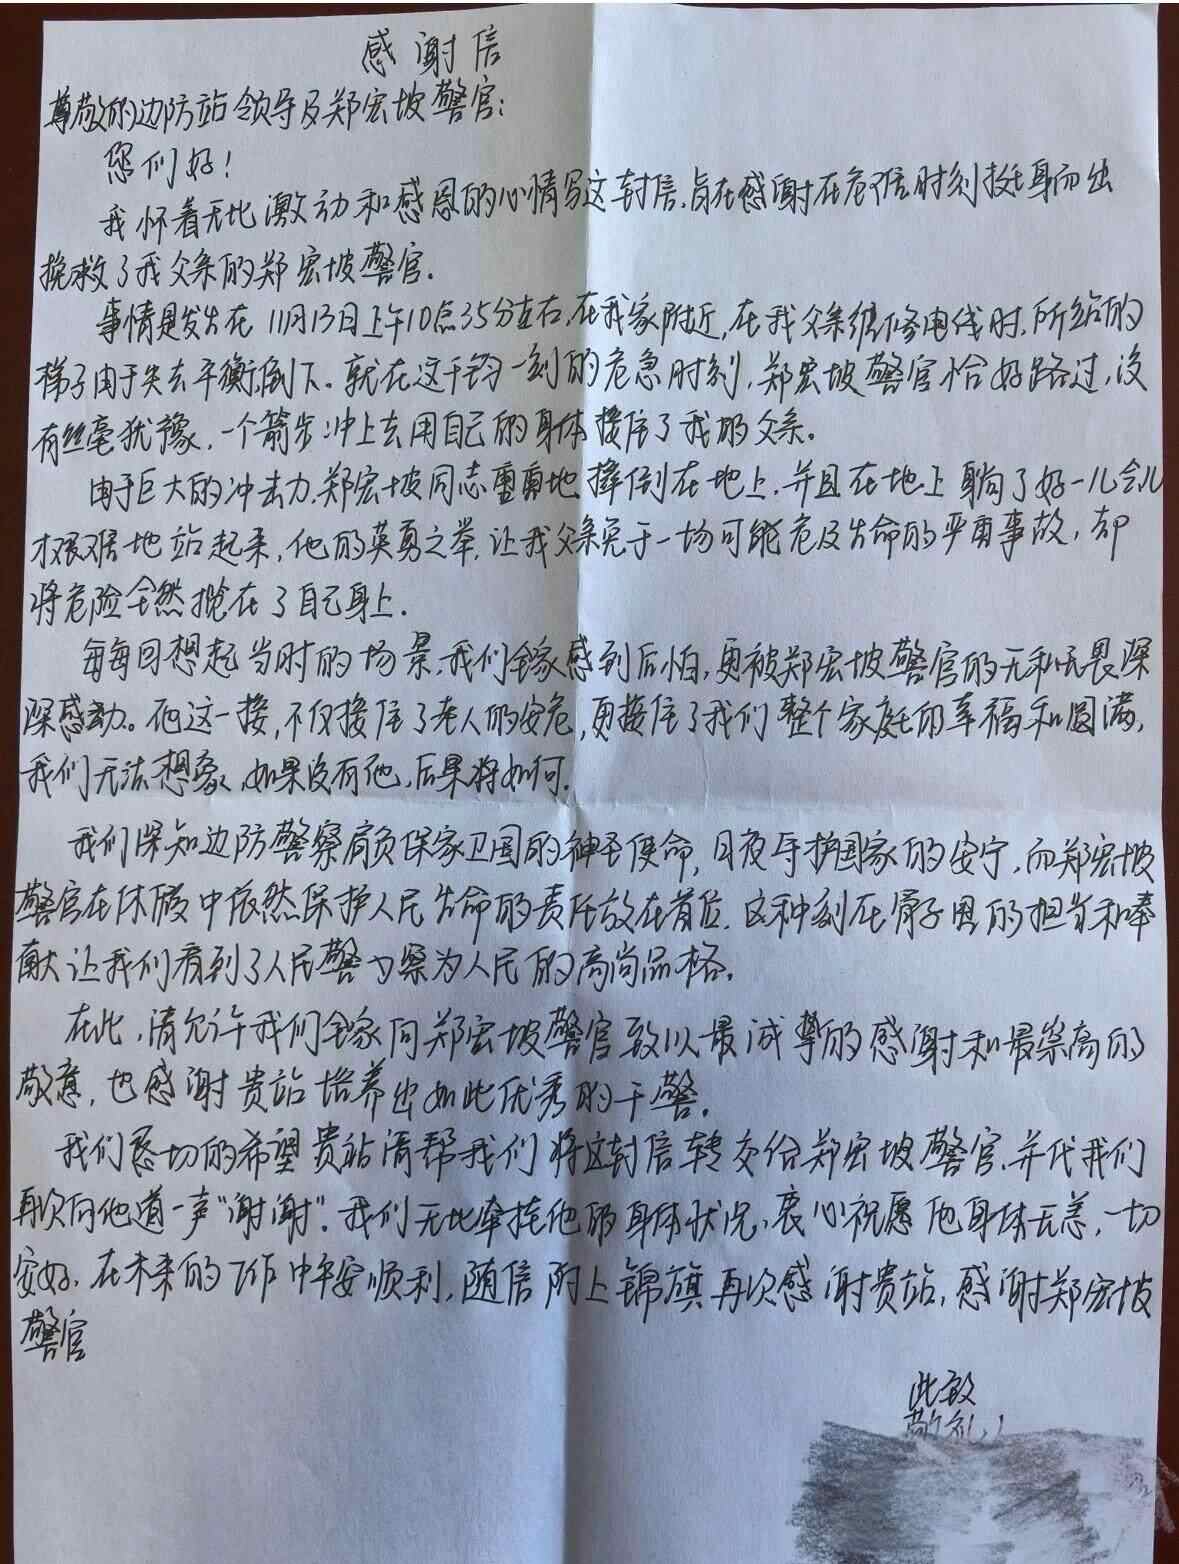 感谢信
尊敬的边防站领导及郑宏坡警官：
您们好！
我怀着无比激动和感恩的心情写这封信，旨在感谢在危险时刻挺身而出
挽救了我父亲的郑宏坡警官.
事情是发生在11月13日上午10点35分左右，在我家附近，在我父亲维修电线时，所站的
梯子由于失去平衡倒下。就在这千钧一刻的危急时刻，郑宏坡警官恰好路过，没
有丝毫犹豫，一个箭步冲上去用自己的身体接住了我的父亲。
由于巨大的冲击力，郑宏坡同志重重地摔倒在地上，并且在地上躺了好一儿会儿
才艰难地站起来，他的英勇之举，让我父亲免于一场可能危及生命的严重事故，却
将危险全然揽在了自己身上.
每每回想起当时的场景，我们全家感到后怕，更被郑宏坡警官的无私无畏深
深感动。他这一接，不仅接住了老人的安危，更接住了我们整个家庭的幸福和圆满，
我们无法想象，如果没有他，后果将如何.
我们深知边防警察肩负保家卫国的神圣使命，日夜守护国家的安宁，而郑宏坡
警官在休假中依然保护人民生命的责任放在首位，这种刻在骨子里的担当和奉
献让我们看到了人民警察为人民的高尚品格。
在此，请允许我们全家向郑宏坡警官致以最诚挚的感谢和最崇高的
敬意，也感谢贵站培养出如此优秀的干警。
我们恳切的希望贵站请帮我们将这封信转交给郑宏坡警官，并代我们
再次向他道一声“谢谢”。我们无比牵挂他的身体状况，衷心祝愿他身体无恙，一切
安好，在未来的工作中平安顺利，随信附上锦旗再次感谢贵站，感谢郑宏坡
警官
此致
敬礼！